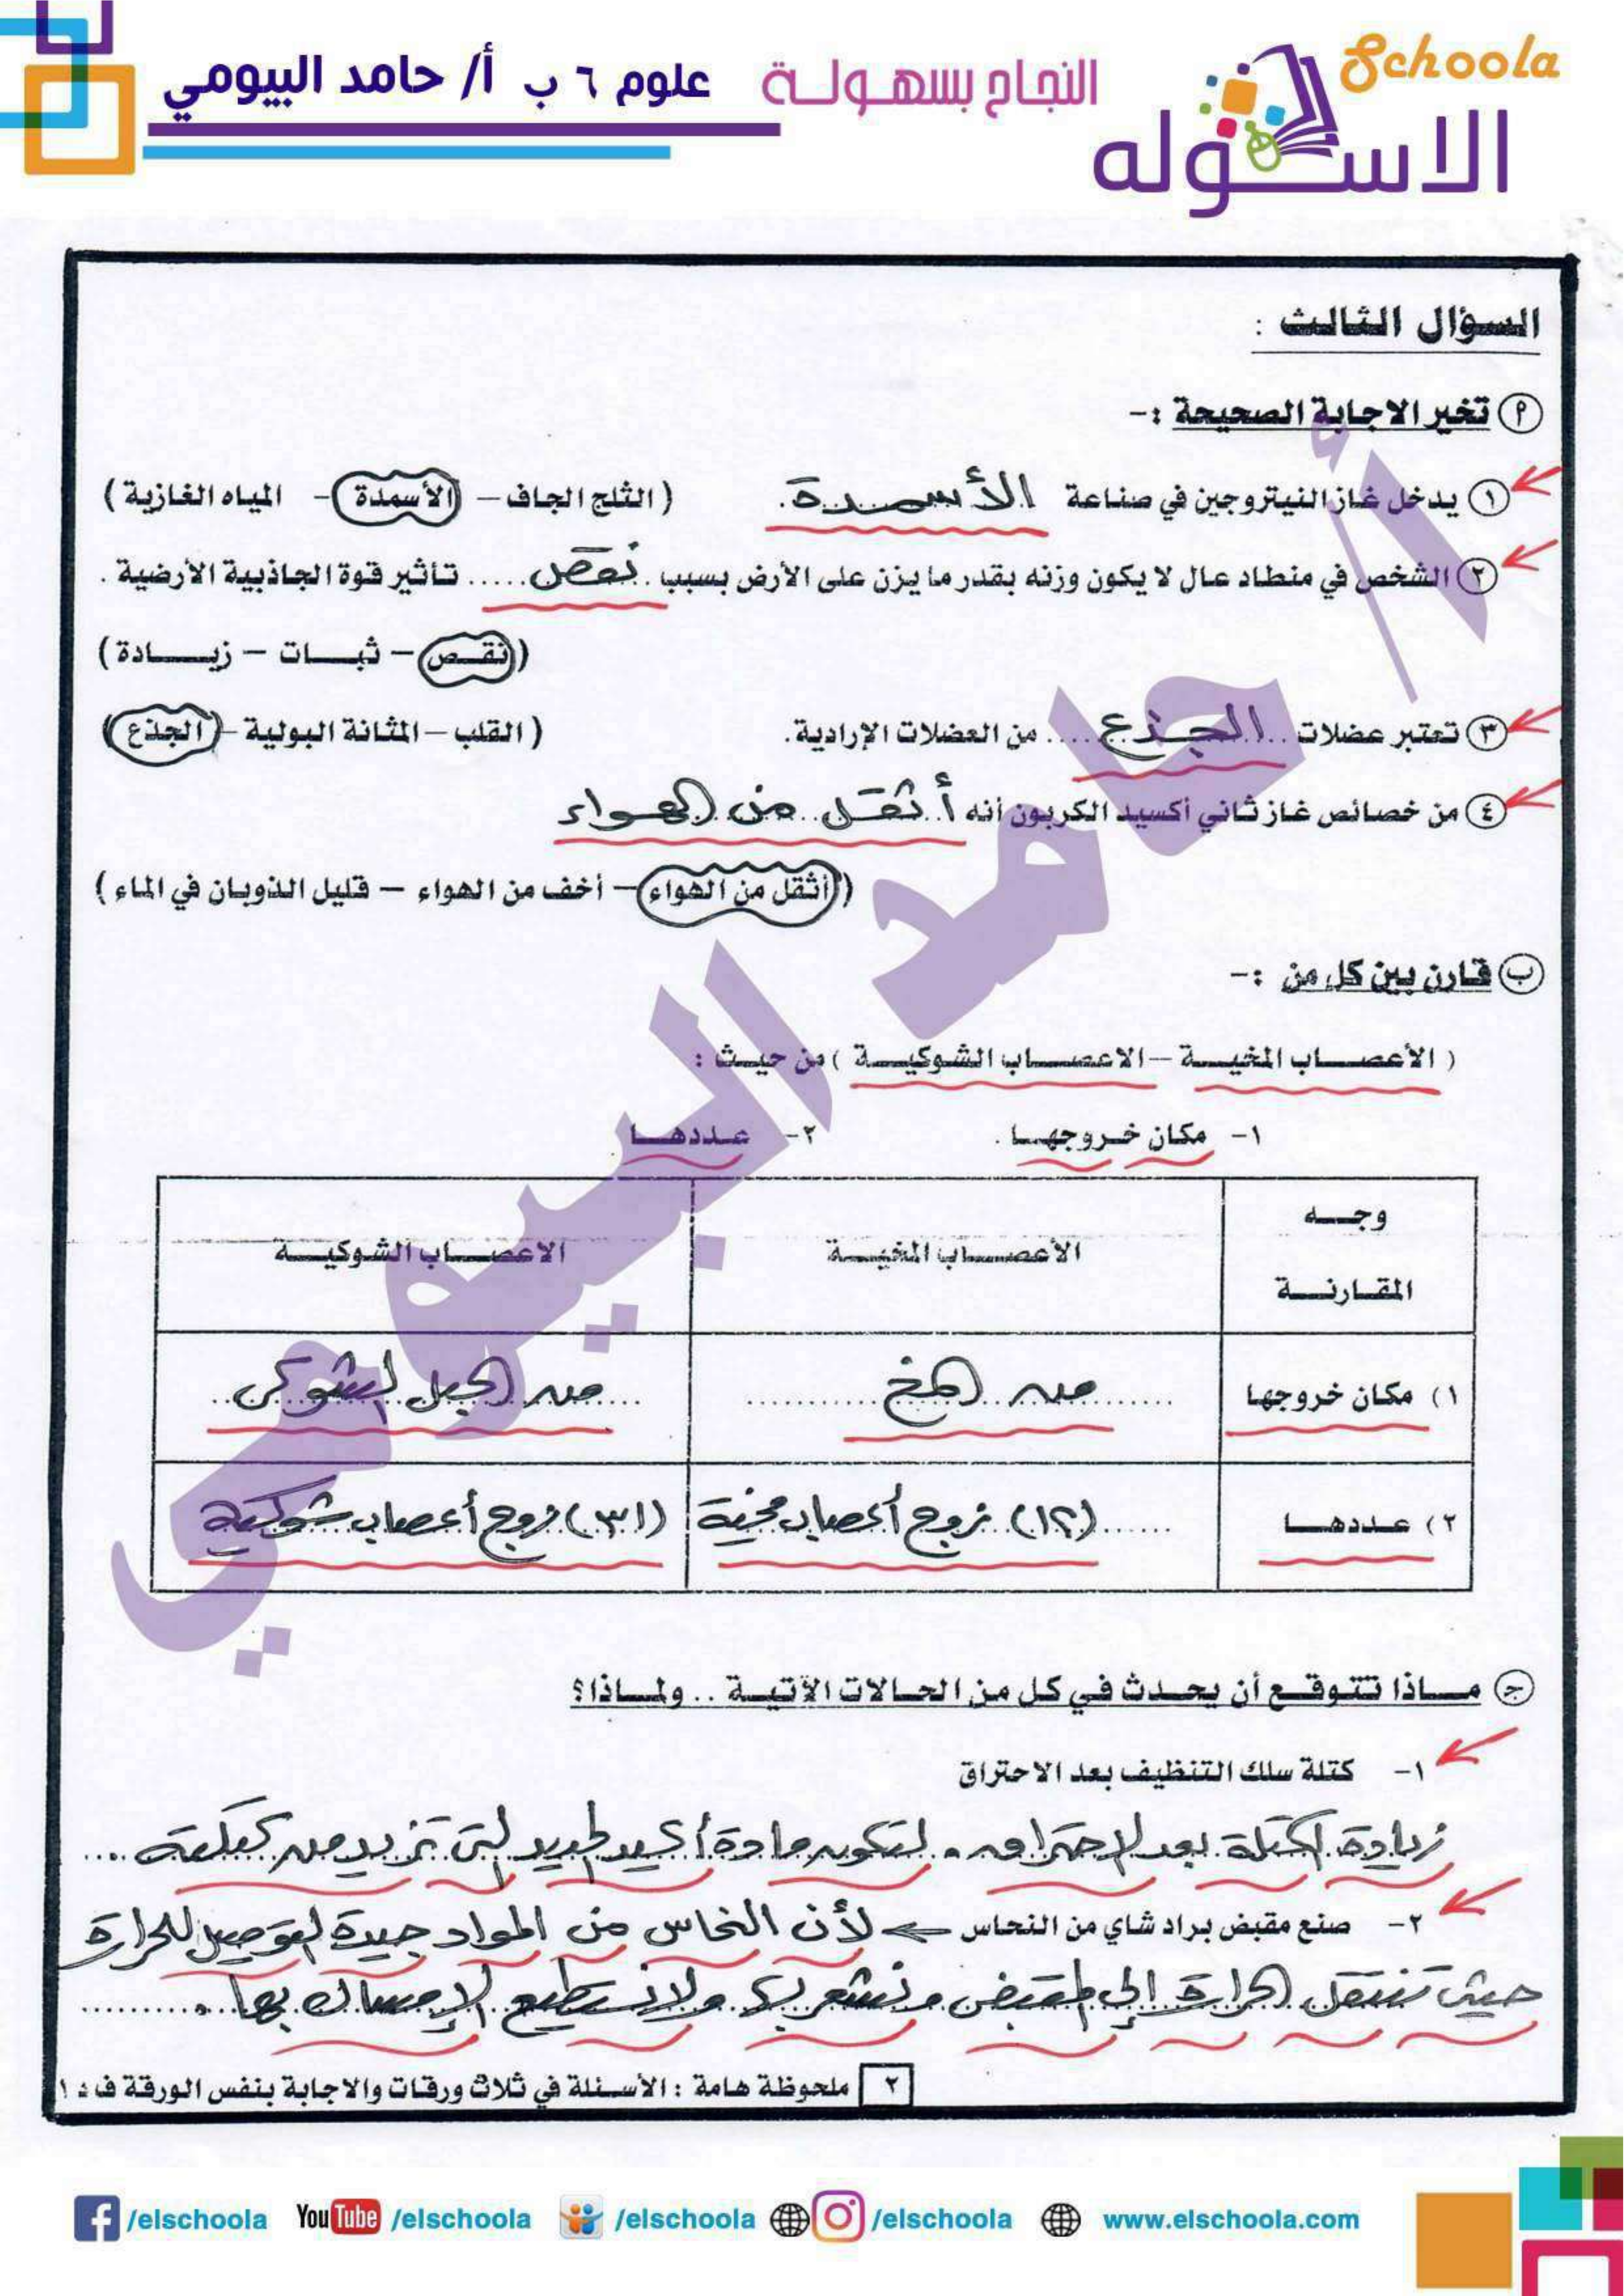 Schoola
الاسكوله
النجاح بسهولة
علوم ٦ ب أ/ حامد البيومي
السؤال الثالث :
أ تخير الاجابة الصحيحة :-
١ يدخل غاز النيتروجين في صناعة الأسمدة. ( الثلج الجاف – الأسمدة – المياه الغازية )
٢ الشخص في منطاد عال لا يكون وزنه بقدر ما يزن على الأرض بسبب .نقص..... تأثير قوة الجاذبية الأرضية .
( نقص – ثبات – زيادة )
٣ تعتبر عضلات ..الجذع.... من العضلات الإرادية. ( القلب – المثانة البولية – الجذع )
٤ من خصائص غاز ثاني أكسيد الكربون أنه أثقل من الهواء
( أثقل من الهواء – أخف من الهواء – قليل الذوبان في الماء )
ب قارن بين كل من :-
( الأعصاب المخية – الاعصاب الشوكية ) من حيث :
١- مكان خروجها . ٢- عددها .
وجه المقارنة
الأعصاب المخية
الاعصاب الشوكية
١) مكان خروجها
من المخ
من الحبل الشوكى
٢) عددها
(١٢) زوج أعصاب مخية
(٣١) زوج أعصاب شوكية
ج ماذا تتوقع أن يحدث في كل من الحالات الآتية .. ولماذا؟
١- كتلة سلك التنظيف بعد الاحتراق
زيادة الكتلة بعد الاحتراق . لتكون مادة أكسيد الحديد التى تزيد من كتلته ....
٢- صنع مقبض براد شاي من النحاس ← لأن النحاس من المواد جيدة التوصيل للحرارة
حيث تنتقل الحرارة إلى المقبض ونشعر بها ولا نستطيع الإمساك بها ..........
٢ ملحوظة هامة : الأسئلة في ثلاث ورقات والاجابة بنفس الورقة ف د ١
أ/ حامد البيومي
/elschoola YouTube /elschoola /elschoola /elschoola www.elschoola.com